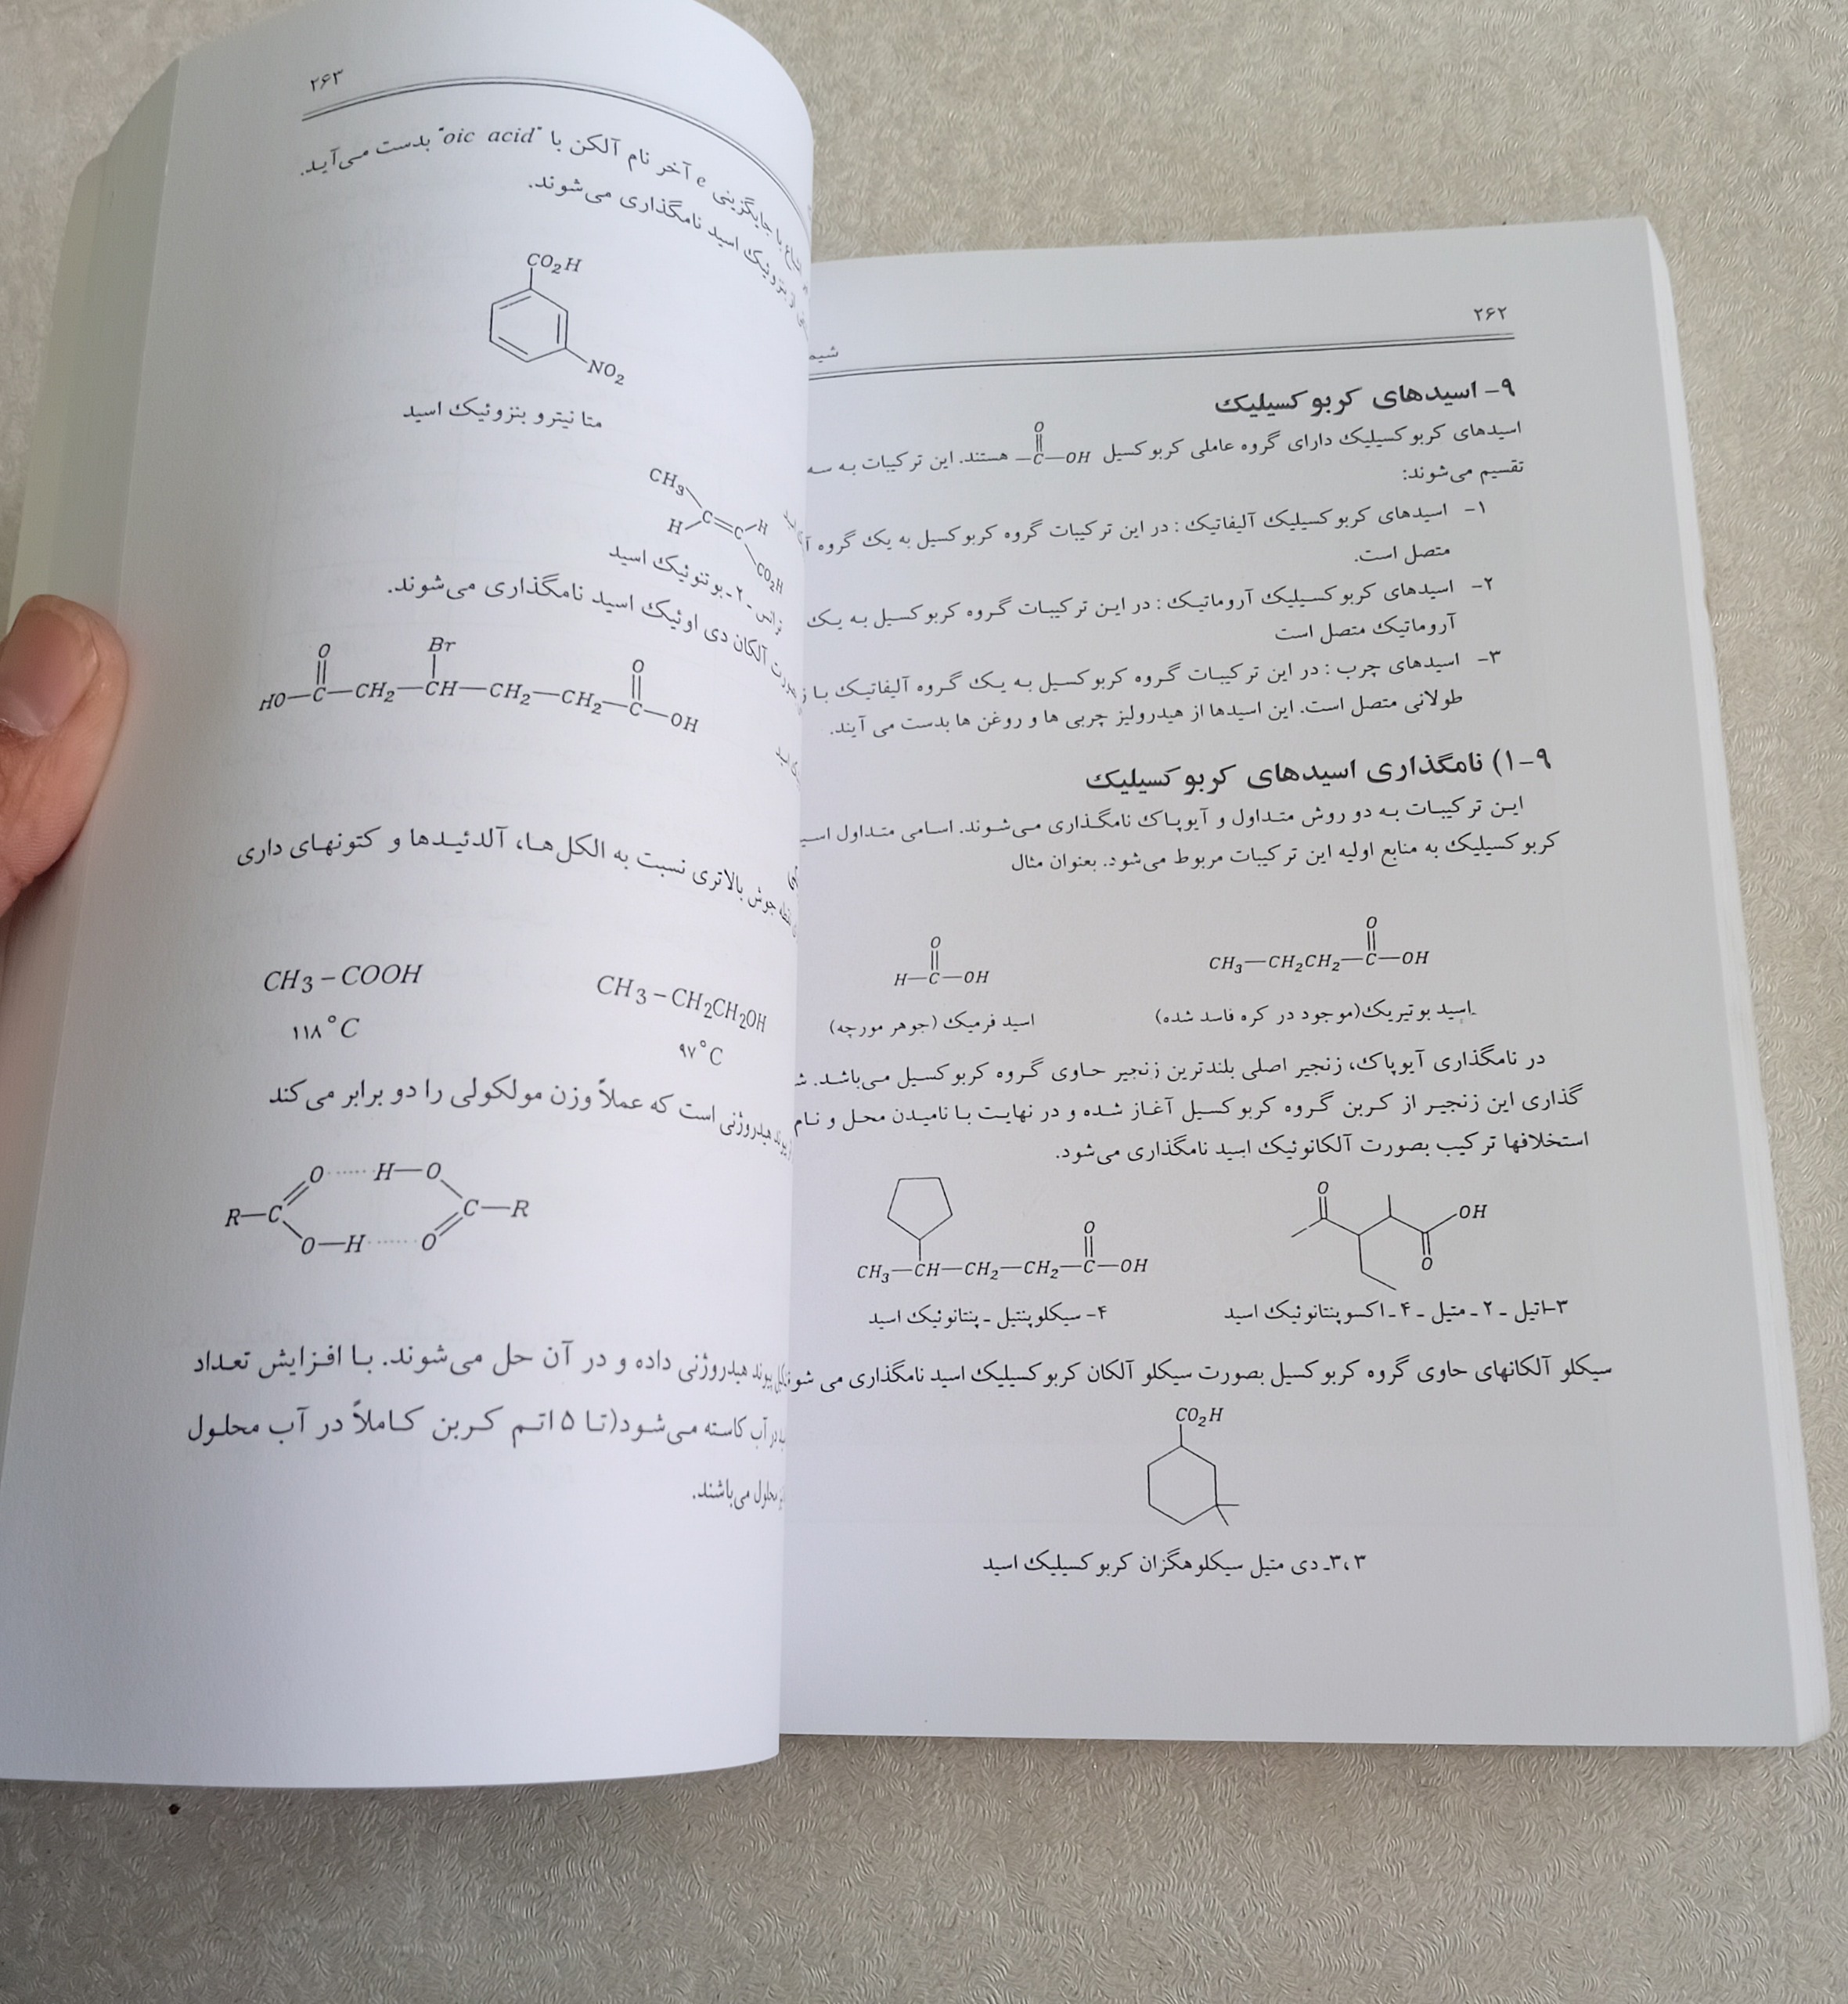 ۲۶۲
۹- اسیدهای کربوکسیلیک
اسیدهای کربوکسیلیک دارای گروه عاملی کربوکسیل
O
–C–OH
هستند. این ترکیبات به سه
تقسیم می‌شوند:
۱- اسیدهای کربوکسیلیک آلیفاتیک : در این ترکیبات گروه کربوکسیل به یک گروه
متصل است.
۲- اسیدهای کربوکسیلیک آروماتیک : در این ترکیبات گروه کربوکسیل به یک
آروماتیک متصل است
۳- اسیدهای چرب : در این ترکیبات گروه کربوکسیل به یک گروه آلیفاتیک با
طولانی متصل است. این اسیدها از هیدرولیز چربی ها و روغن ها بدست می آیند.
۹-۱) نامگذاری اسیدهای کربوکسیلیک
این ترکیبات به دو روش متداول و آیوپاک نامگذاری می‌شوند. اسامی متداول
کربوکسیلیک به منابع اولیه این ترکیبات مربوط می‌شود. بعنوان مثال
O
CH3–CH2CH2–C–OH
O
H–C–OH
اسید بوتیریک(موجود در کره فاسد شده)
اسید فرمیک (جوهر مورچه)
در نامگذاری آیوپاک، زنجیر اصلی بلندترین زنجیر حاوی گروه کربوکسیل می‌باشد.
گذاری این زنجیر از کربن گروه کربوکسیل آغاز شده و در نهایت با نامیدن محل و نام
استخلافها ترکیب بصورت آلکانوئیک اسید نامگذاری می‌شود.
O
OH
O
O
CH3–CH–CH2–CH2–C–OH
۳-اتیل ـ ۲ ـ متیل ـ ۴ ـ اکسوپنتانوئیک اسید
۴- سیکلوپنتیل ـ پنتانوئیک اسید
سیکلو آلکانهای حاوی گروه کربوکسیل بصورت سیکلو آلکان کربوکسیلیک اسید نامگذاری می
CO2H
۳،۳ـ دی متیل سیکلوهگزان کربوکسیلیک اسید
۲۶۳
با جایگزینی e آخر نام آلکن با "oic acid" بدست می‌آید.
از بنزوئیک اسید نامگذاری می‌شوند.
CO2H
NO2
متا نیترو بنزوئیک اسید
CH3
H C=C H
CO2H
ترانس ـ ۲ ـ بوتنوئیک اسید
آلکان دی اوئیک اسید نامگذاری می‌شوند.
O Br O
HO–C–CH2–CH–CH2–CH2–C–OH
جوش بالاتری نسبت به الکل‌ها، آلدئیدها و کتونهای داری
CH3–CH2CH2OH
CH3–COOH
۹۷°C
۱۱۸°C
پیوند هیدروژنی است که عملاً وزن مولکولی را دو برابر می‌کند
O ······ H–O
R–C C–R
O–H ······ O
پیوند هیدروژنی داده و در آن حل می‌شوند. با افزایش تعداد
در آب کاسته می‌شود(تا ۵ اتم کربن کاملاً در آب محلول
محلول می‌باشند.